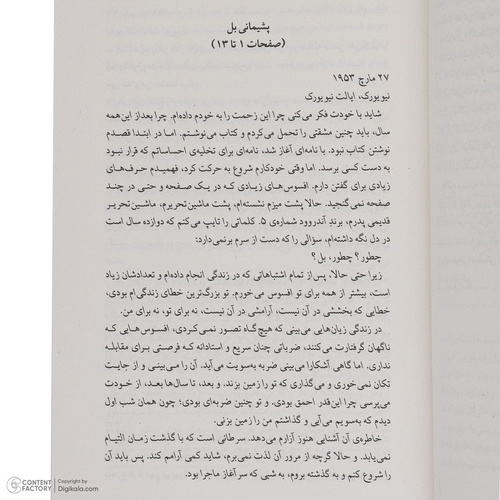 پشیمانی بل
(صفحات ۱ تا ۱۳)
۲۷ مارچ ۱۹۵۳
نیویورک، ایالت نیویورک
شاید با خودت فکر می‌کنی چرا این زحمت را به خودم داده‌ام. چرا بعد از این‌همه
سال، باید چنین مشقتی را تحمل می‌کردم و کتاب می‌نوشتم. اما در ابتدا قصدم
نوشتن کتاب نبود. با نامه‌ای آغاز شد، نامه‌ای برای تخلیه‌ی احساساتم که قرار نبود
به دست کسی برسد. اما وقتی خودکارم شروع به حرکت کرد، فهمیدم حرف‌های
زیادی برای گفتن دارم. افسوس‌های زیادی که در یک صفحه و حتی در چند
صفحه نمی‌گنجید. حالا پشت میزم نشسته‌ام، پشت ماشین‌تحریرم، ماشین‌تحریر
قدیمی پدرم، برند آندروود شماره‌ی ۵. کلماتی را تایپ می‌کنم که دوازده سال است
در دل نگه داشته‌ام، سؤالی را که دست از سرم برنمی‌دارد:
چطور؟ چطور، بل؟
زیرا حتی حالا، پس از تمام اشتباهاتی که در زندگی انجام داده‌ام و تعدادشان زیاد
است، بیشتر از همه برای تو افسوس می‌خورم. تو بزرگ‌ترین خطای زندگی‌ام بودی،
خطایی که بخششی در آن نیست، آرامشی در آن نیست، نه برای تو، نه برای من.
در زندگی زیان‌هایی می‌بینی که هیچ‌گاه تصور نمی‌کردی، افسوس‌هایی که
ناگهان گرفتارت می‌کنند، ضرباتی چنان سریع و استادانه که فرصتی برای مقابله
نداری. اما گاهی آشکارا می‌بینی ضربه به‌سویت می‌آید. آن را می‌بینی و از جایت
تکان نمی‌خوری و می‌گذاری که تو را زمین بزند. و بعد، تا سال‌ها بعد، از خودت
می‌پرسی چرا این‌قدر احمق بودی، و تو چنین ضربه‌ای بودی؛ چون همان شب اول
دیدم که به‌سویم می‌آیی و گذاشتم من را زمین بزنی.
خاطره‌ی آن آشنایی هنوز آزارم می‌دهد. سرطانی است که با گذشت زمان التیام
نمی‌یابد. و حالا گرچه از مرور آن لذت نمی‌برم، شاید کمی آرامم کند. پس باید آن
را شروع کنم و به گذشته بروم، به شبی که سرآغاز ماجرا بود.
CONTENT FACTORY | Copyright by Digikala.com